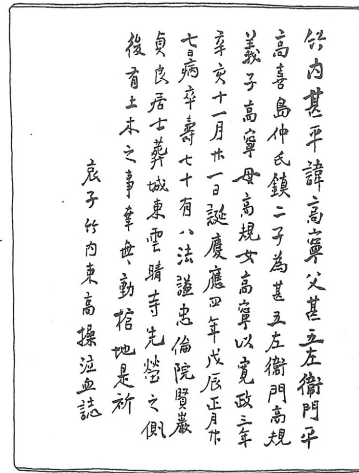 竹内甚平諱高寧父甚五左衞門平
高喜島仲氏鎮二子為甚五左衞門高規
義子高寧母高規女高寧以寛政三年
辛亥十一月廿一日誕慶應四年戊辰正月廿
七日病卒壽七十有八法謚忠倫院賢巖
貞良居士葬城東雲晴寺先塋之側
後有土木之事幸毋動搶地是祈
哀子竹内東高操泣血誌